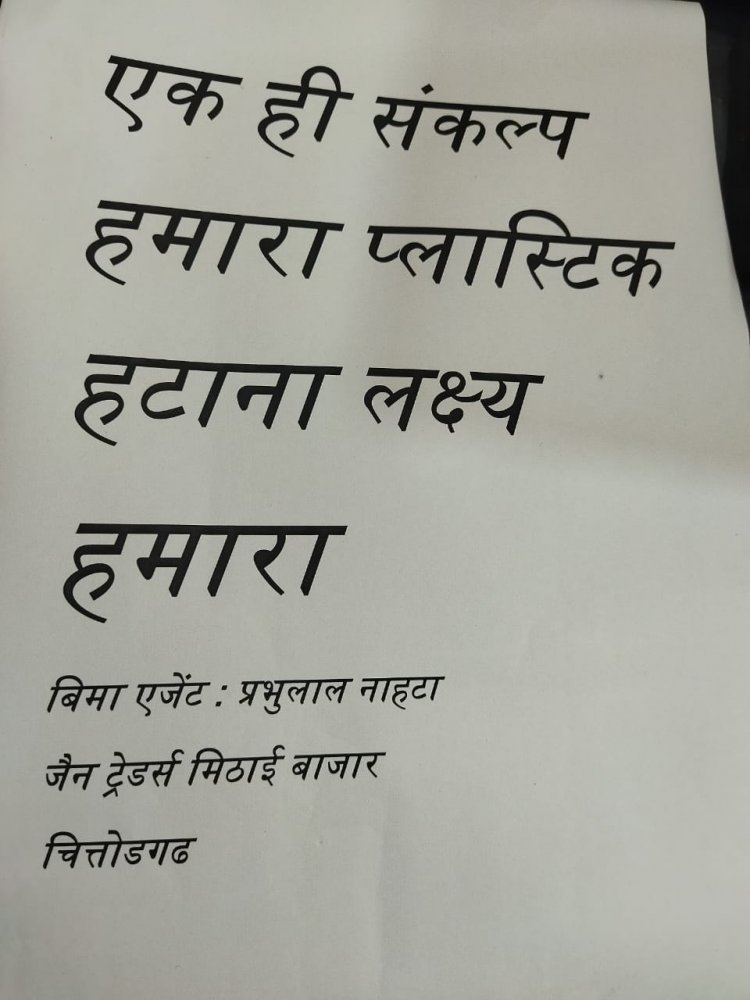 एक ही संकल्प
हमारा प्लास्टिक
हटाना लक्ष्य
हमारा
बिमा एजेंट : प्रभुलाल नाहटा
जैन ट्रेडर्स मिठाई बाजार
चित्तोडगढ